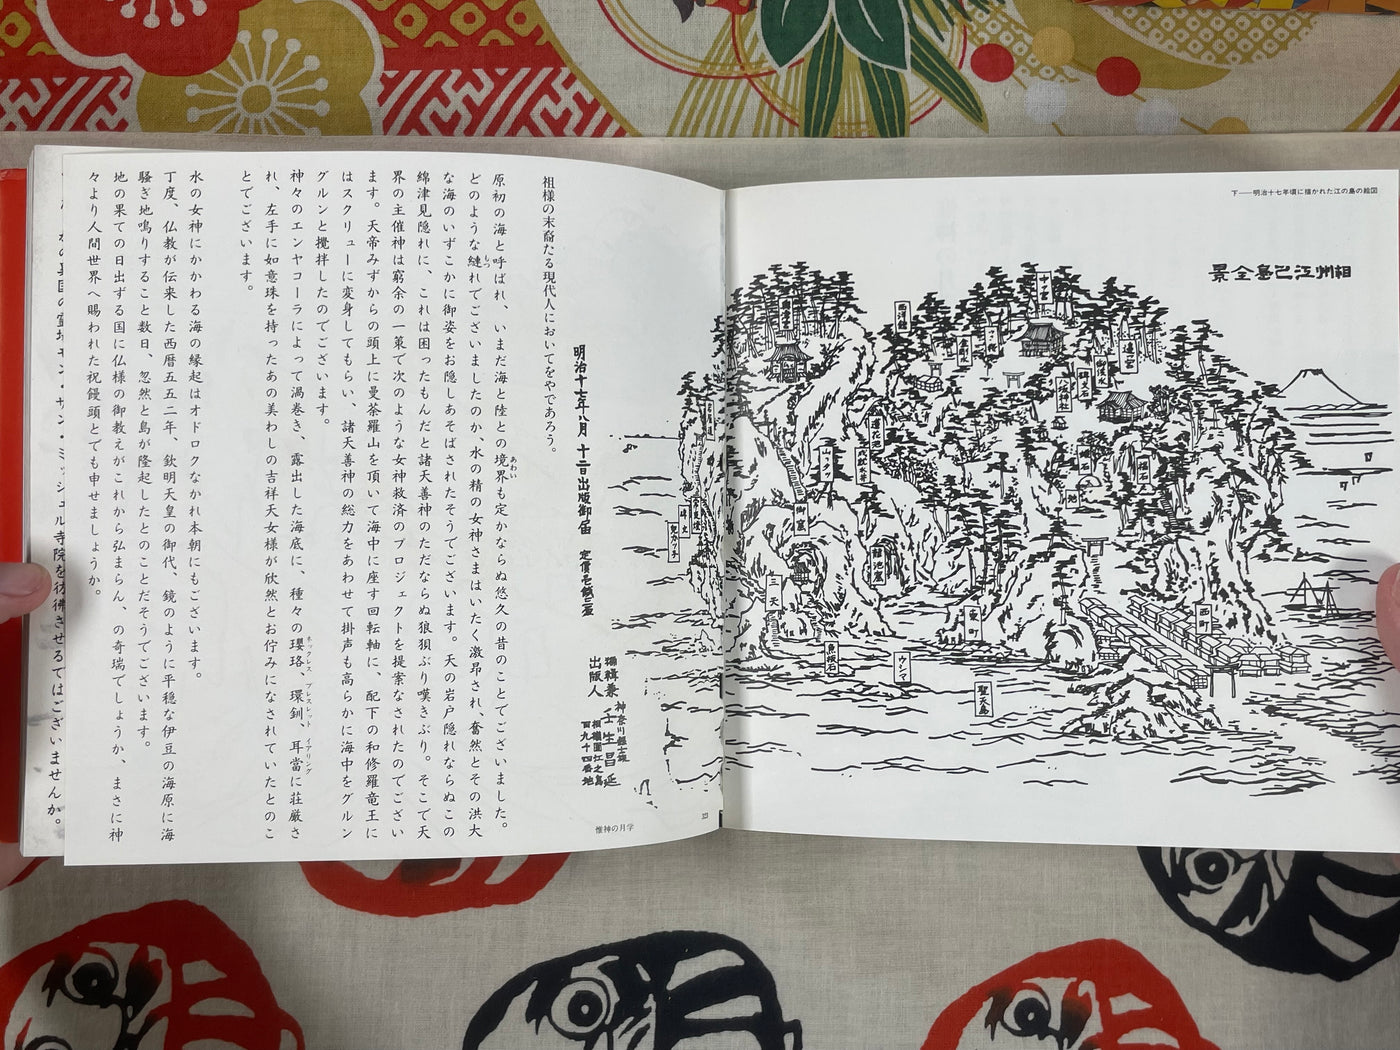 下——明治十七年頃に描かれた江の島の絵図
相州江已島全景
中ツ宮
邊津宮
西洋館
八坂神社
福石
蓮花池
山ウワダ
御窟
龍池窟
三天
魚板石
東町
西町
ウシマ
聖天島
兒カ淵
祖様の末裔たる現代人においてをやであろう。
原初の海と呼ばれ、いまだ海と陸との境界も定かならぬ悠久の昔のことでございました。
あわい
どのような縺れでございましたのか、水の精の女神さまはいたく激昂され、奮然とその洪大
もつ
な海のいずこかに御姿をお隠しあそばされたそうでございます。天の岩戸隠れならぬこの
綿津見隠れに、これは困ったもんだと諸天善神のただならぬ狼狽ぶり嘆きぶり。そこで天
界の主催神は窮余の一策で次のような女神救済のプロジェクトを提案なされたのでござい
ます。天帝みずからの頭上に曼荼羅山を頂いて海中に座す回転軸に、配下の和修羅竜王に
はスクリューに変身してもらい、諸天善神の総力をあわせて掛声も高らかに海中をグルン
グルンと攪拌したのでございます。
神々のエンヤコーラによって渦巻き、露出した海底に、種々の瓔珞、環釧、耳當に荘厳さ
ネックレス ブレスレット イアリング
れ、左手に如意珠を持ったあの美わしの吉祥天女様が欣然とお佇みになされていたとのこ
とでございます。
水の女神にかかわる海の縁起はオドロクなかれ本朝にもございます。
丁度、仏教が伝来した西暦五五二年、欽明天皇の御代、鏡のように平穏な伊豆の海原に海
騒ぎ地鳴りすること数日、忽然と島が隆起したとのことだそうでございます。
地の果ての日出ずる国に仏様の御教えがこれから弘まらん、の奇瑞でしょうか、まさに神
々より人間世界へ賜われた祝饅頭とでも申せましょうか。
明治十七年八月 十二日出版御届 定價壱銭三厘
編輯兼
出版人
神奈川縣士族
壬生昌延
相模國江之島
百九十四番地
惟神の月学
323
モン・サン・ミッシェル寺院を彷彿させるではございませんか。